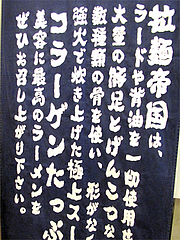 拉麺帝国は、
ラードや背油を一切使用せ
大量の豚足とげんこつな
数種類の骨を使い、形がな
強火で炊き上げた極上スー
コラーゲンたっぷ
美容に最高のラーメンを
ぜひお召し上がり下さい。